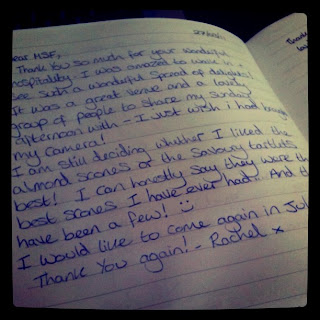 ear MSF,
Thank You so much for your wonderful
hospitality. I was amazed to walk in +
see such a wonderful spread of delights!
It was a great serve and a lovely
group of people to share my sunday
afternoon with - I just wish i had bought
my camera!
I am still deciding whether I liked the
almond scones or the savoury tartlets
best! I can honestly say they were the
best scones I have ever had! And th
have been a few! :)
I would like to come again in Jul
Thank You again! - Rachel x